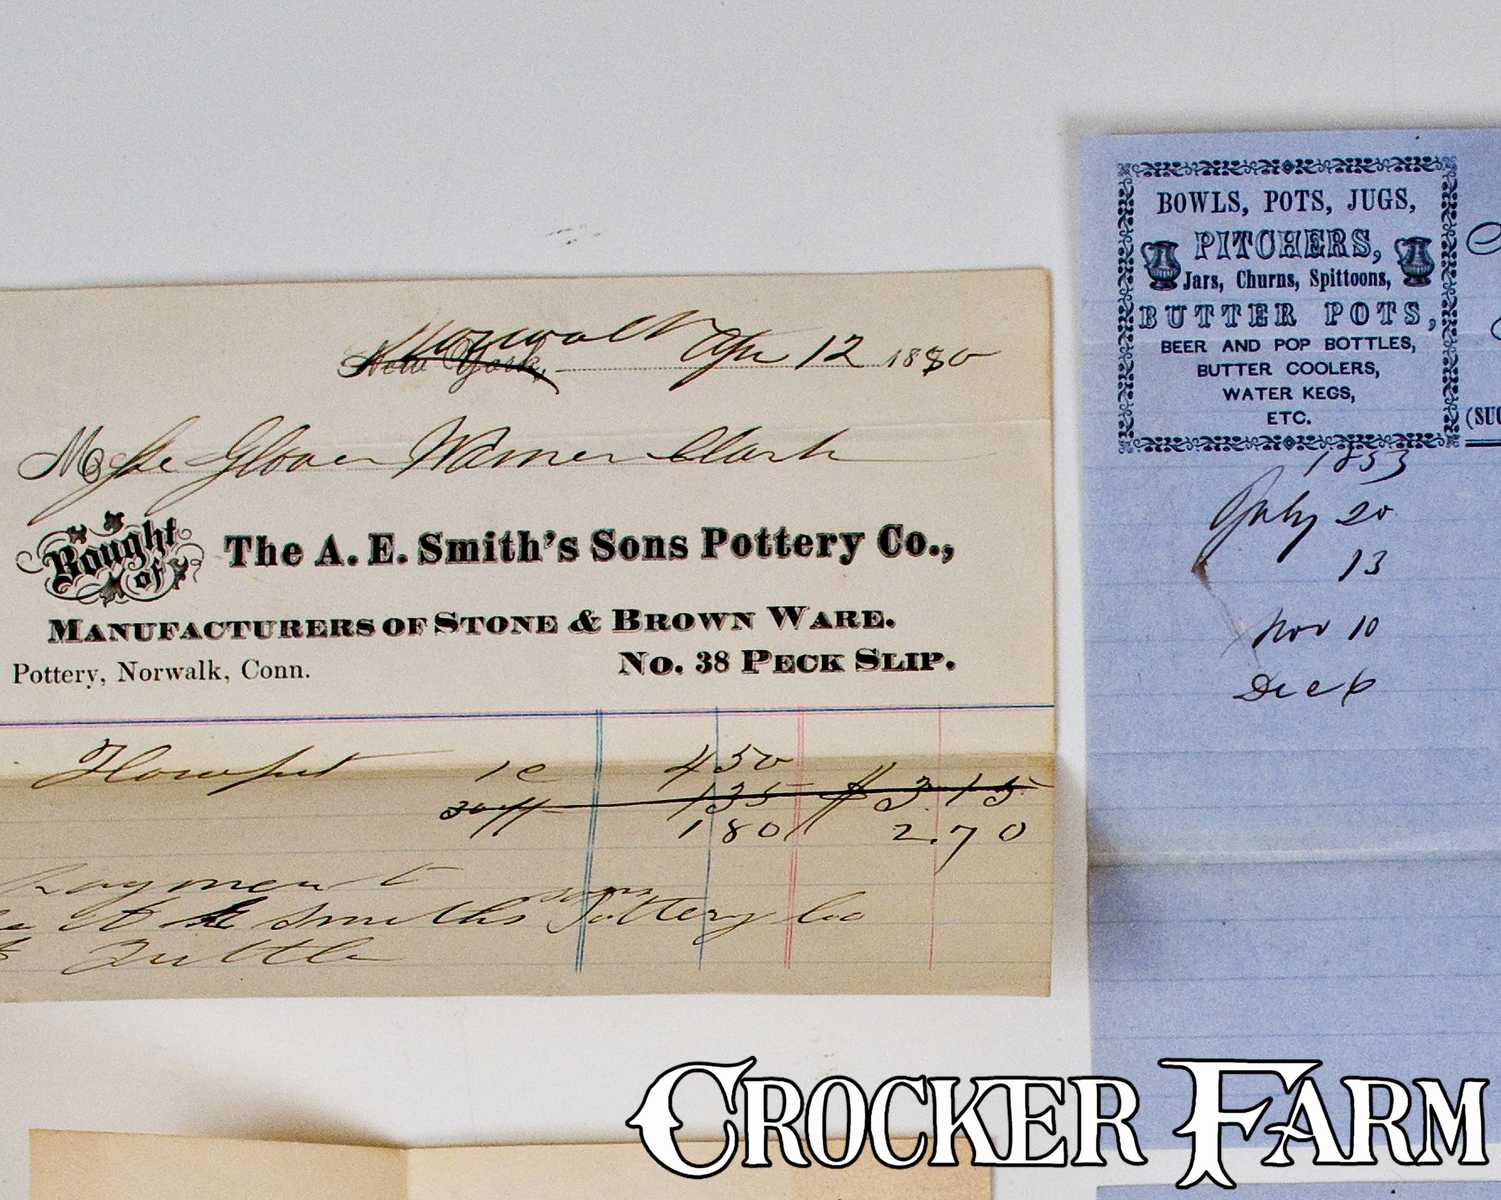 New York, Norwalk Apr 12 1880
Glover Warner Clark
Bought of The A. E. Smith's Sons Pottery Co.,
MANUFACTURERS OF STONE & BROWN WARE.
Pottery, Norwalk, Conn. No. 38 PECK SLIP.
450
30 135 $3.15
180 2.70
Payment
A E Smiths Sons Pottery Co
Tuttle
BOWLS, POTS, JUGS,
PITCHERS,
Jars, Churns, Spittoons,
BUTTER POTS,
BEER AND POP BOTTLES,
BUTTER COOLERS,
WATER KEGS,
ETC.
(SUC
1853
July 20
13
Nov 10
Dec 6
CROCKER FARM